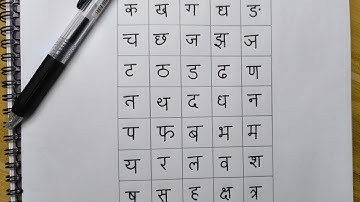 क ख ग घ ङ
च छ ज झ ञ
ट ठ ड ढ ण
त थ द ध न
प फ ब भ म
य र ल व श
ष स ह क्ष त्र